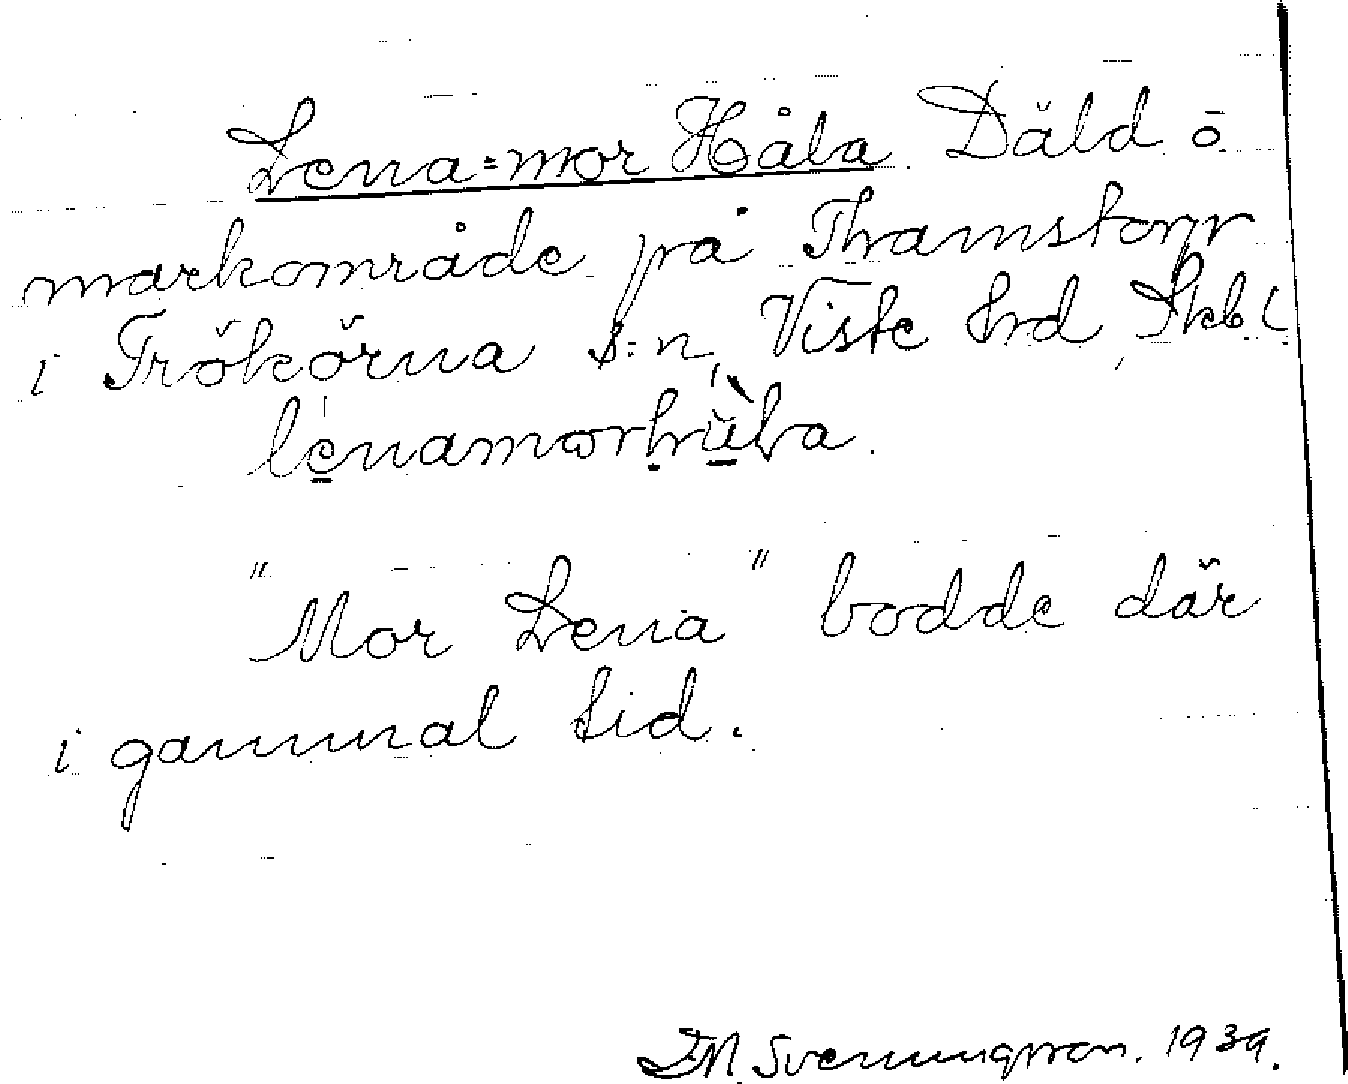 Lena=mor Håla. Däld ō
markområde på Thamstorp
i Trökörna s:n, Viste hrd, Skb.l.
lenamorhùla.
"Mor Lena" bodde där
i gammal tid.
Svenungsson. 1939.